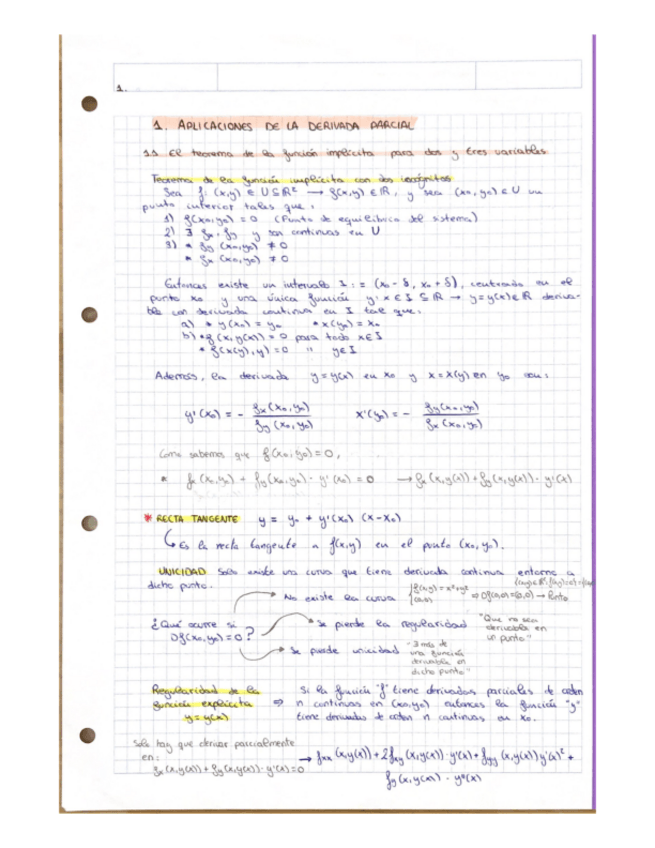 1.
1. APLICACIONES DE LA DERIVADA PARCIAL
1.1 El teorema de la función implícita para dos y tres variables
Teorema de la función implícita con dos incógnitas
Sea f: (x,y) ∈ U⊆ℝ² → f(x,y) ∈ ℝ, y sea (x₀,y₀) ∈ U un
punto interior tales que:
1) f(x₀,y₀) = 0 (Punto de equilibrio del sistema)
2) ∃ fx, fy y son continuas en U
3) * fy (x₀,y₀) ≠ 0
* fx (x₀,y₀) ≠ 0
Entonces existe un intervalo I := (x₀ - δ, x₀ + δ), centrado en el
punto x₀ y una única función y: x ∈ I ⊆ ℝ → y=y(x) ∈ ℝ deriva-
ble con derivada continua en I tal que:
a) * y(x₀) = y₀ * x(y₀) = x₀
b) * f(x,y(x)) = 0 para todo x∈I
* f(x(y),y) = 0 " y∈I
Además, la derivada y=y(x) en x₀ y x=x(y) en y₀ son:
y'(x₀) = - fx(x₀,y₀) / fy(x₀,y₀) x'(y₀) = - fy(x₀,y₀) / fx(x₀,y₀)
Como sabemos que f(x₀,y₀)=0,
* fx(x₀,y₀) + fy(x₀,y₀)· y'(x₀) = 0 → fx(x,y(x)) + fy(x,y(x))· y'(x)
* RECTA TANGENTE y = y₀ + y'(x₀) (x-x₀)
Es la recta tangente a f(x,y) en el punto (x₀,y₀).
UNICIDAD Solo existe una curva que tiene derivada continua entorno a
dicho punto.
No existe la curva f(x,y) = x²+y² (0,0) ⇒ ∇f(0,0)=(0,0) → Punto
¿Qué ocurre si
∇f(x₀,y₀)=0?
Se pierde la regularidad "Que no sea
derivable en
un punto"
Se puede unicidad "3 más de
una función
derivable en
dicho punto"
Regularidad de la
función explícita
y=y(x)
⇒ Si la función "f" tiene derivadas parciales de orden
n continuas en (x₀,y₀) entonces la función "y"
tiene derivadas de orden n continuas en x₀.
Solo hay que derivar parcialmente
en:
fx(x,y(x)) + fy(x,y(x))· y'(x)=0
→ fxx(x,y(x)) + 2fxy(x,y(x))·y'(x) + fyy(x,y(x)) y'(x)² +
fy(x,y(x)) · y''(x)